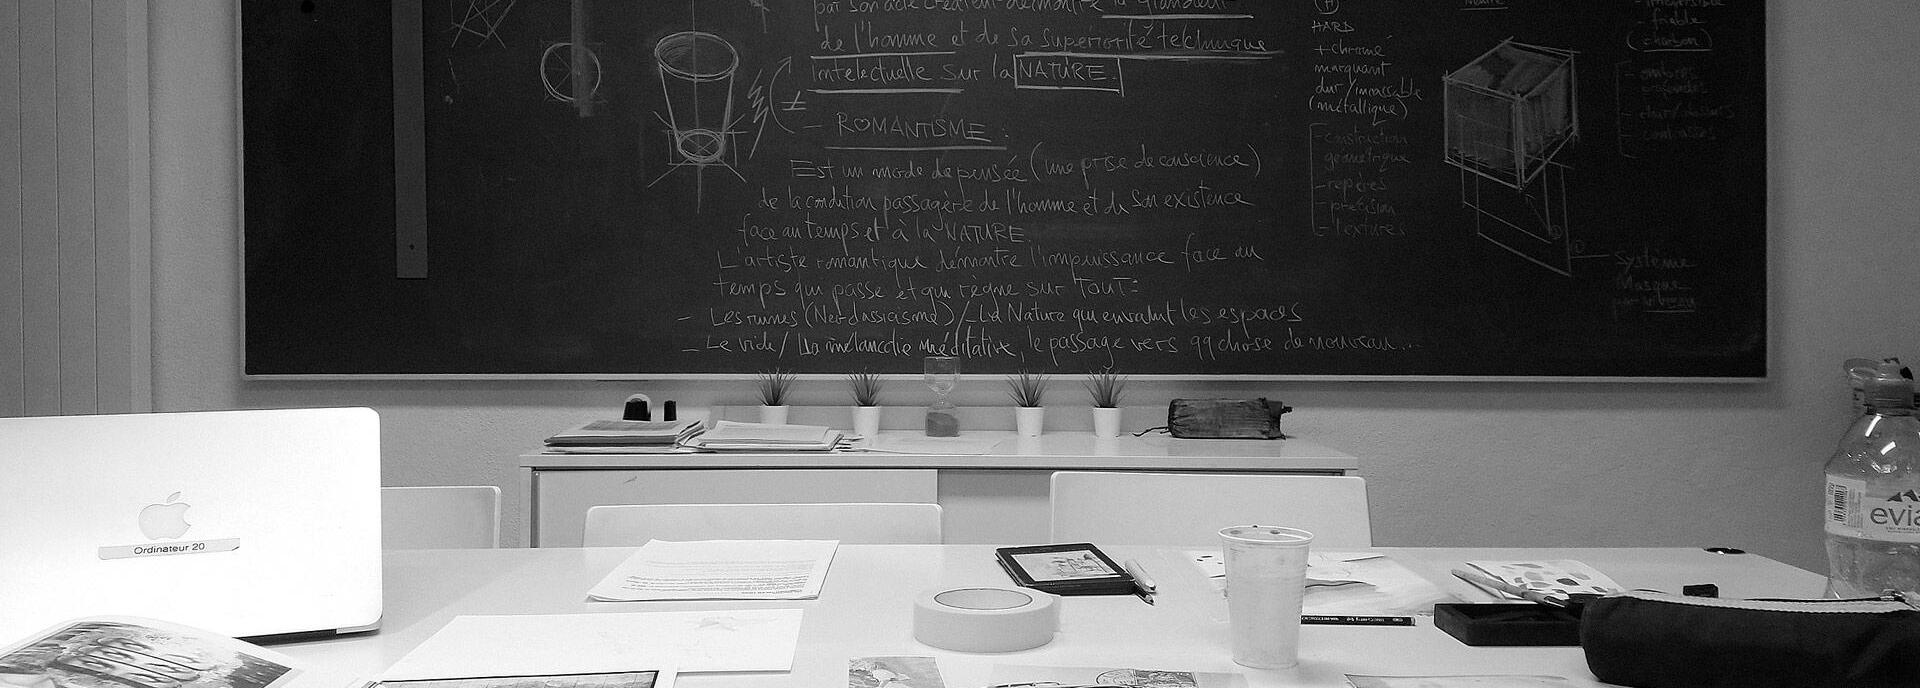 par son acte créateur démontre la grandeur
de l'homme et de sa superiorité technique
intelectuelle sur la NATURE.
≠
— ROMANTISME :
Est un mode de pensée (une prise de conscience)
de la condition passagère de l'homme et de son existence
face au temps et à la NATURE.
L'artiste romantique démontre l'impuissance face au
temps qui passe et qui règne sur TOUT:
— Les ruines (Neo-classicisme) / La Nature qui envahit les espaces
— Le vide / La mélancolie méditative, le passage vers qqchose de nouveau...
(H)
HARD
+ chromé
marquant
dur/
(métallique)
- construction
géometrique
- repères
- précision
- textures
- friable
(charbon)
- ombres
- contrastes
Système
Masque
Ordinateur 20
evia